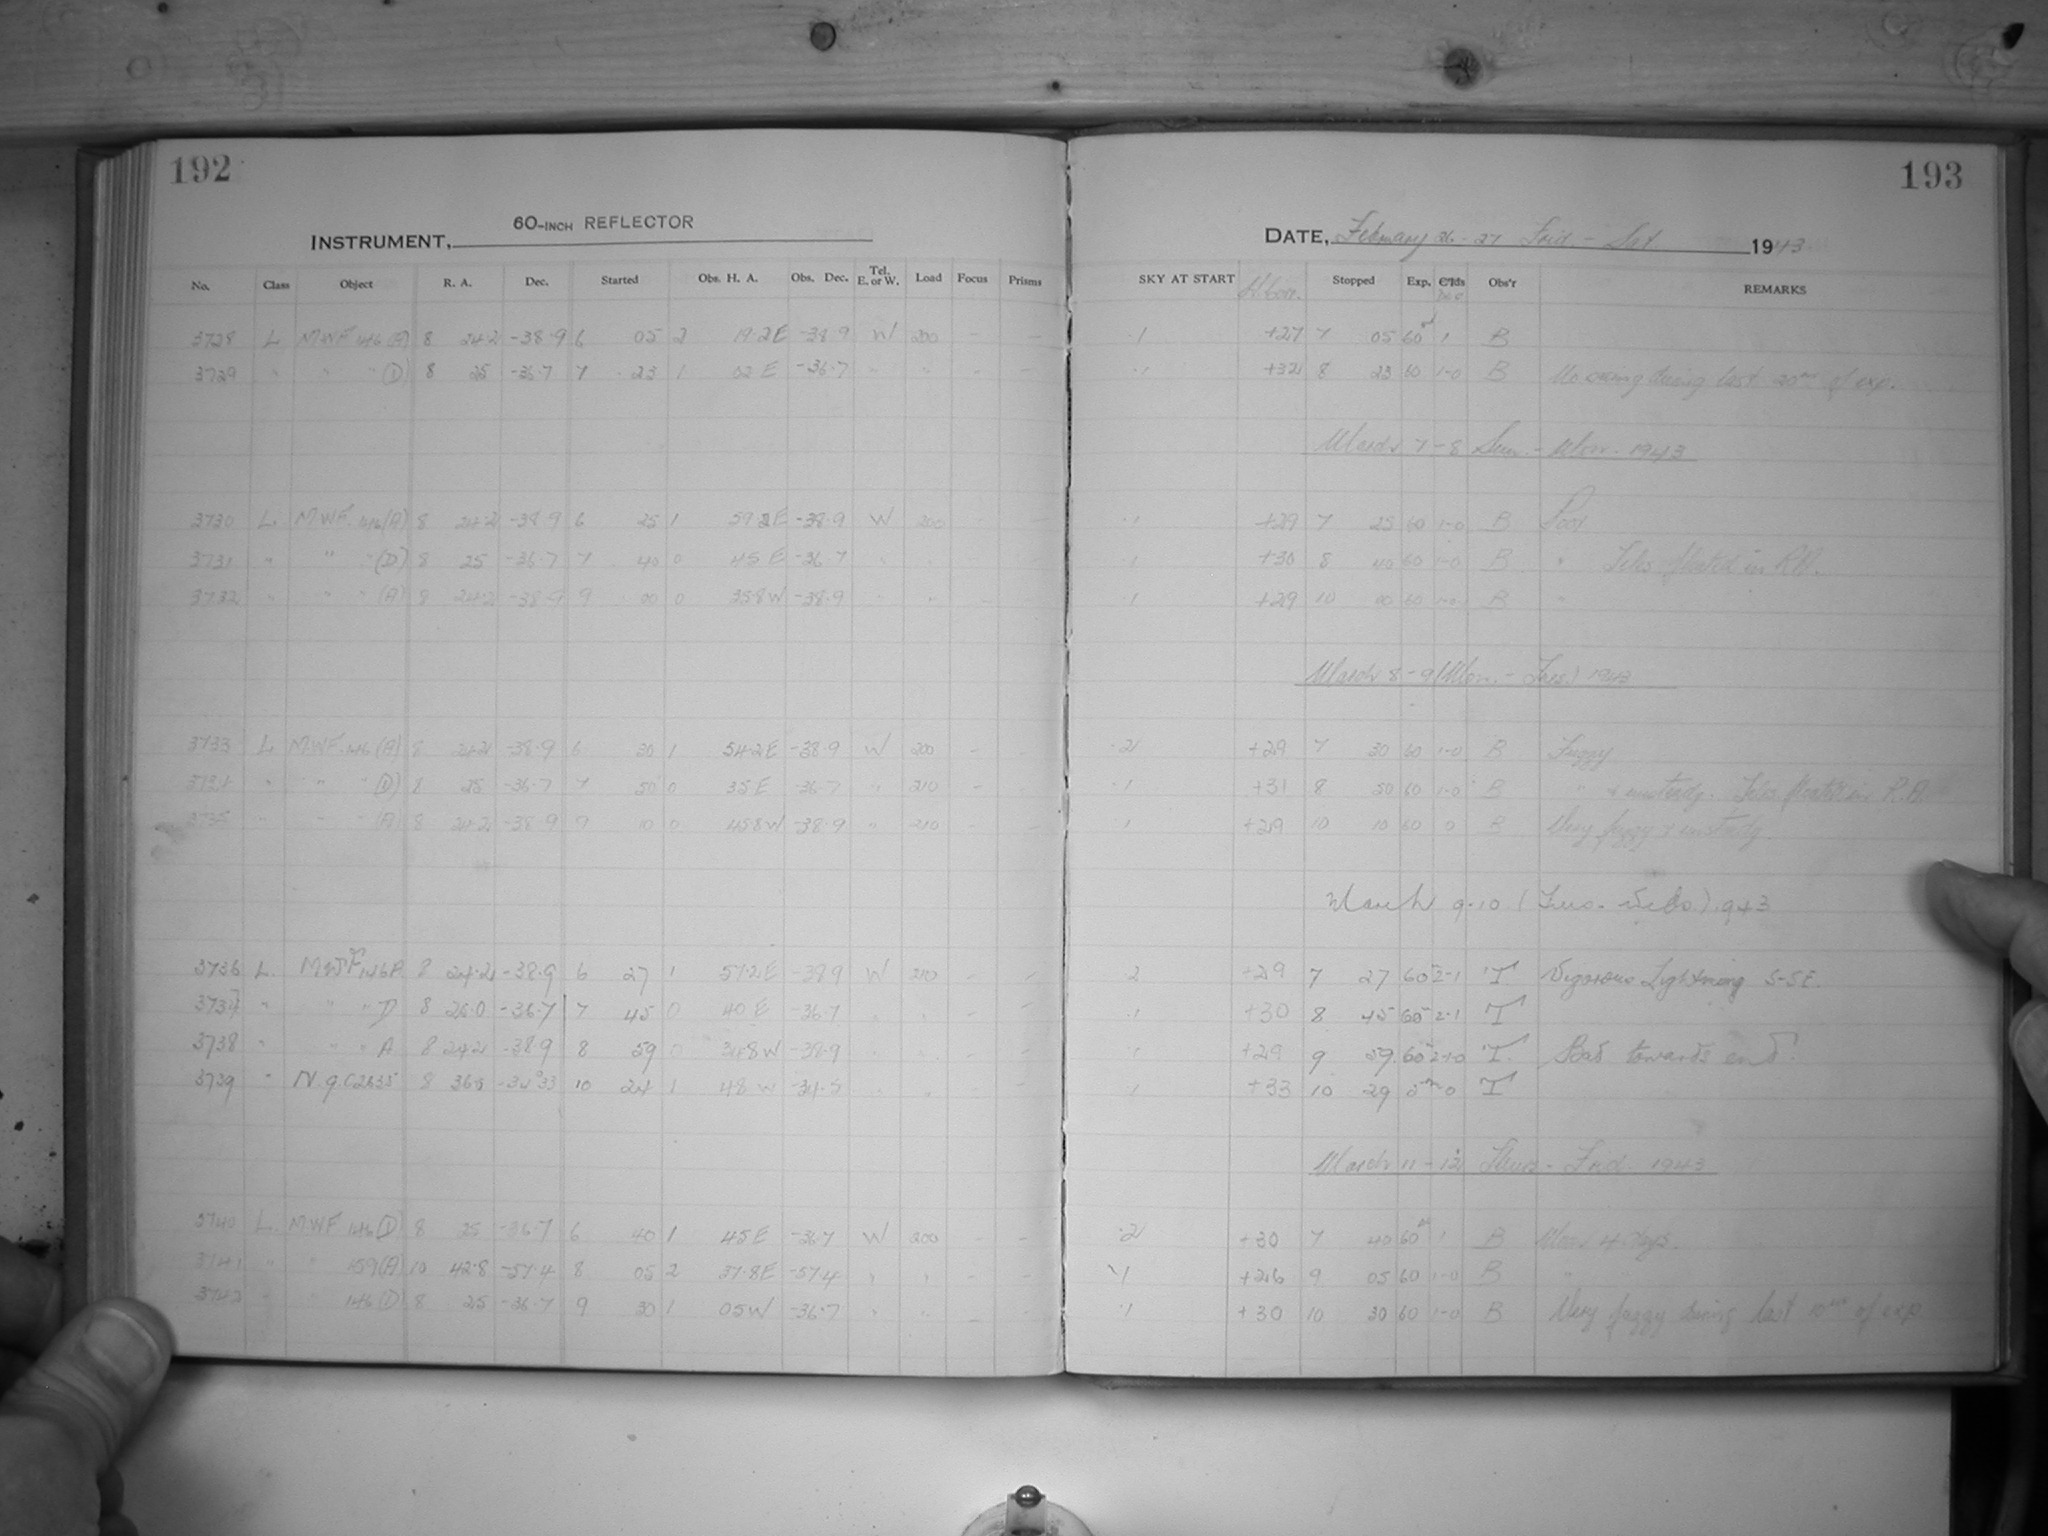 192
193
INSTRUMENT, 60-INCH REFLECTOR
DATE, February 26-27 Frid. - Sat. 1943
No. Class Object R. A. Dec. Started Obs. H. A. Obs. Dec. Tel. E. or W. Load Focus Prisms SKY AT START Stopped Exp. Obs'r REMARKS
3728 L MWF 146 (A) 8 24.2 -38.9 6 05 2 19.2E -38.9 W 200 - - .1 +27 7 05 60 1 B
3729 " " " (D) 8 25 -36.7 7 23 1 02 E -36.7 " " - - .1 +32 8 23 60 1-0 B during last 20m of exp.
March 7-8 Sun. - Mon. 1943
3730 L. MWF. 146(A) 8 24.2 -38.9 6 25 1 59.2E -38.9 W 200 - - .1 +29 7 25 60 1-0 B Poor
3731 " " "(D) 8 25 -36.7 7 40 0 45 E -36.7 " " .1 +30 8 40 60 1-0 B " in R.A.
3732 " " " (A) 8 24.2 -38.9 9 00 0 35.8W -38.9 " " - - .1 +29 10 00 60 1-0 B "
March 8-9 (Mon. - Tues.) 1943
3733 L MWF. 146 (A) 8 24.2 -38.9 6 30 1 54.2E -38.9 W 200 - - .2 +29 7 30 60 1-0 B Fuzzy
3734 " " " (D) 8 25 -36.7 7 50 0 35E -36.7 " 210 - - .1 +31 8 50 60 1-0 B " & unsteady. in R.A.
3735 " " " (A) 8 24.2 -38.9 9 10 0 45.8W -38.9 " 210 - - .1 +29 10 10 60 0 B Very fuzzy & unsteady
March 9-10 (Tues. - Weds) 1943
3736 L. MWF 146A 8 24.2 -38.9 6 27 1 57.2E -38.9 W 210 - - .2 +29 7 27 60 2-1 T Vigorous Lightning S-SE.
3737 " " " D 8 25.0 -36.7 7 45 0 40 E -36.7 " " - - .1 +30 8 45 60 2-1 T
3738 " " " A 8 24.2 -38.9 8 59 0 34.8W -38.9 " " - - .1 +29 9 59 60 T. Bad towards end.
3739 " N.g.C2635 8 36.5 -34°33 10 24 1 48 W -34.5 " " - - .1 +33 10 29 5m 0 T
March 11-12 Thurs - Frid. 1943
3740 L. MWF 146(D) 8 25 -36.7 6 40 1 45E -36.7 W 200 - - .2 +30 7 40 60 1 B Moon 4 days.
3741 " " 159(A) 10 42.8 -57.4 8 05 2 37.8E -57.4 " " - - .1 +26 9 05 60 1-0 B "
3742 " " 146(D) 8 25 -36.7 9 30 1 05W -36.7 " " - - .1 +30 10 30 60 1-0 B Very fuzzy during last 10m of exp